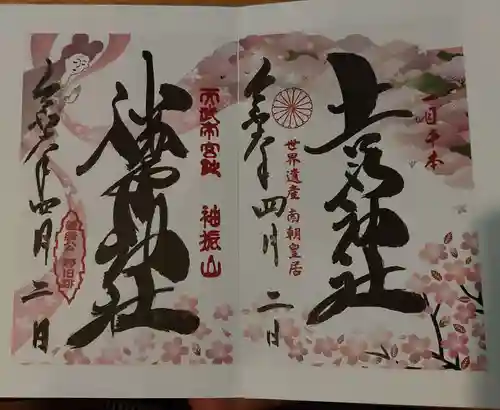 一目千本
吉水神社
世界遺産 南朝皇居
令和六年四月二日
袖振山
勝手神社
令和六年四月二日